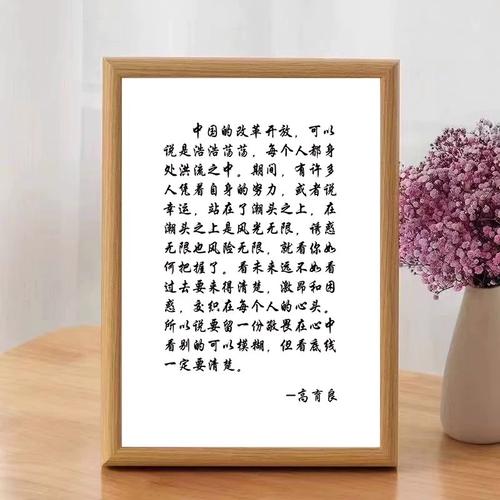 中国的改革开放，可以
说是浩浩荡荡，每个人都身
处洪流之中。期间，有许多
人凭着自身的努力，或者说
幸运，站在了潮头之上，在
潮头之上是风光无限，诱惑
无限也风险无限，就看你如
何把握了。看未来远不如看
过去要来得清楚，激昂和困
惑，交织在每个人的心头。
所以说要留一份敬畏在心中
看别的可以模糊，但看底线
一定要清楚。
—高育良